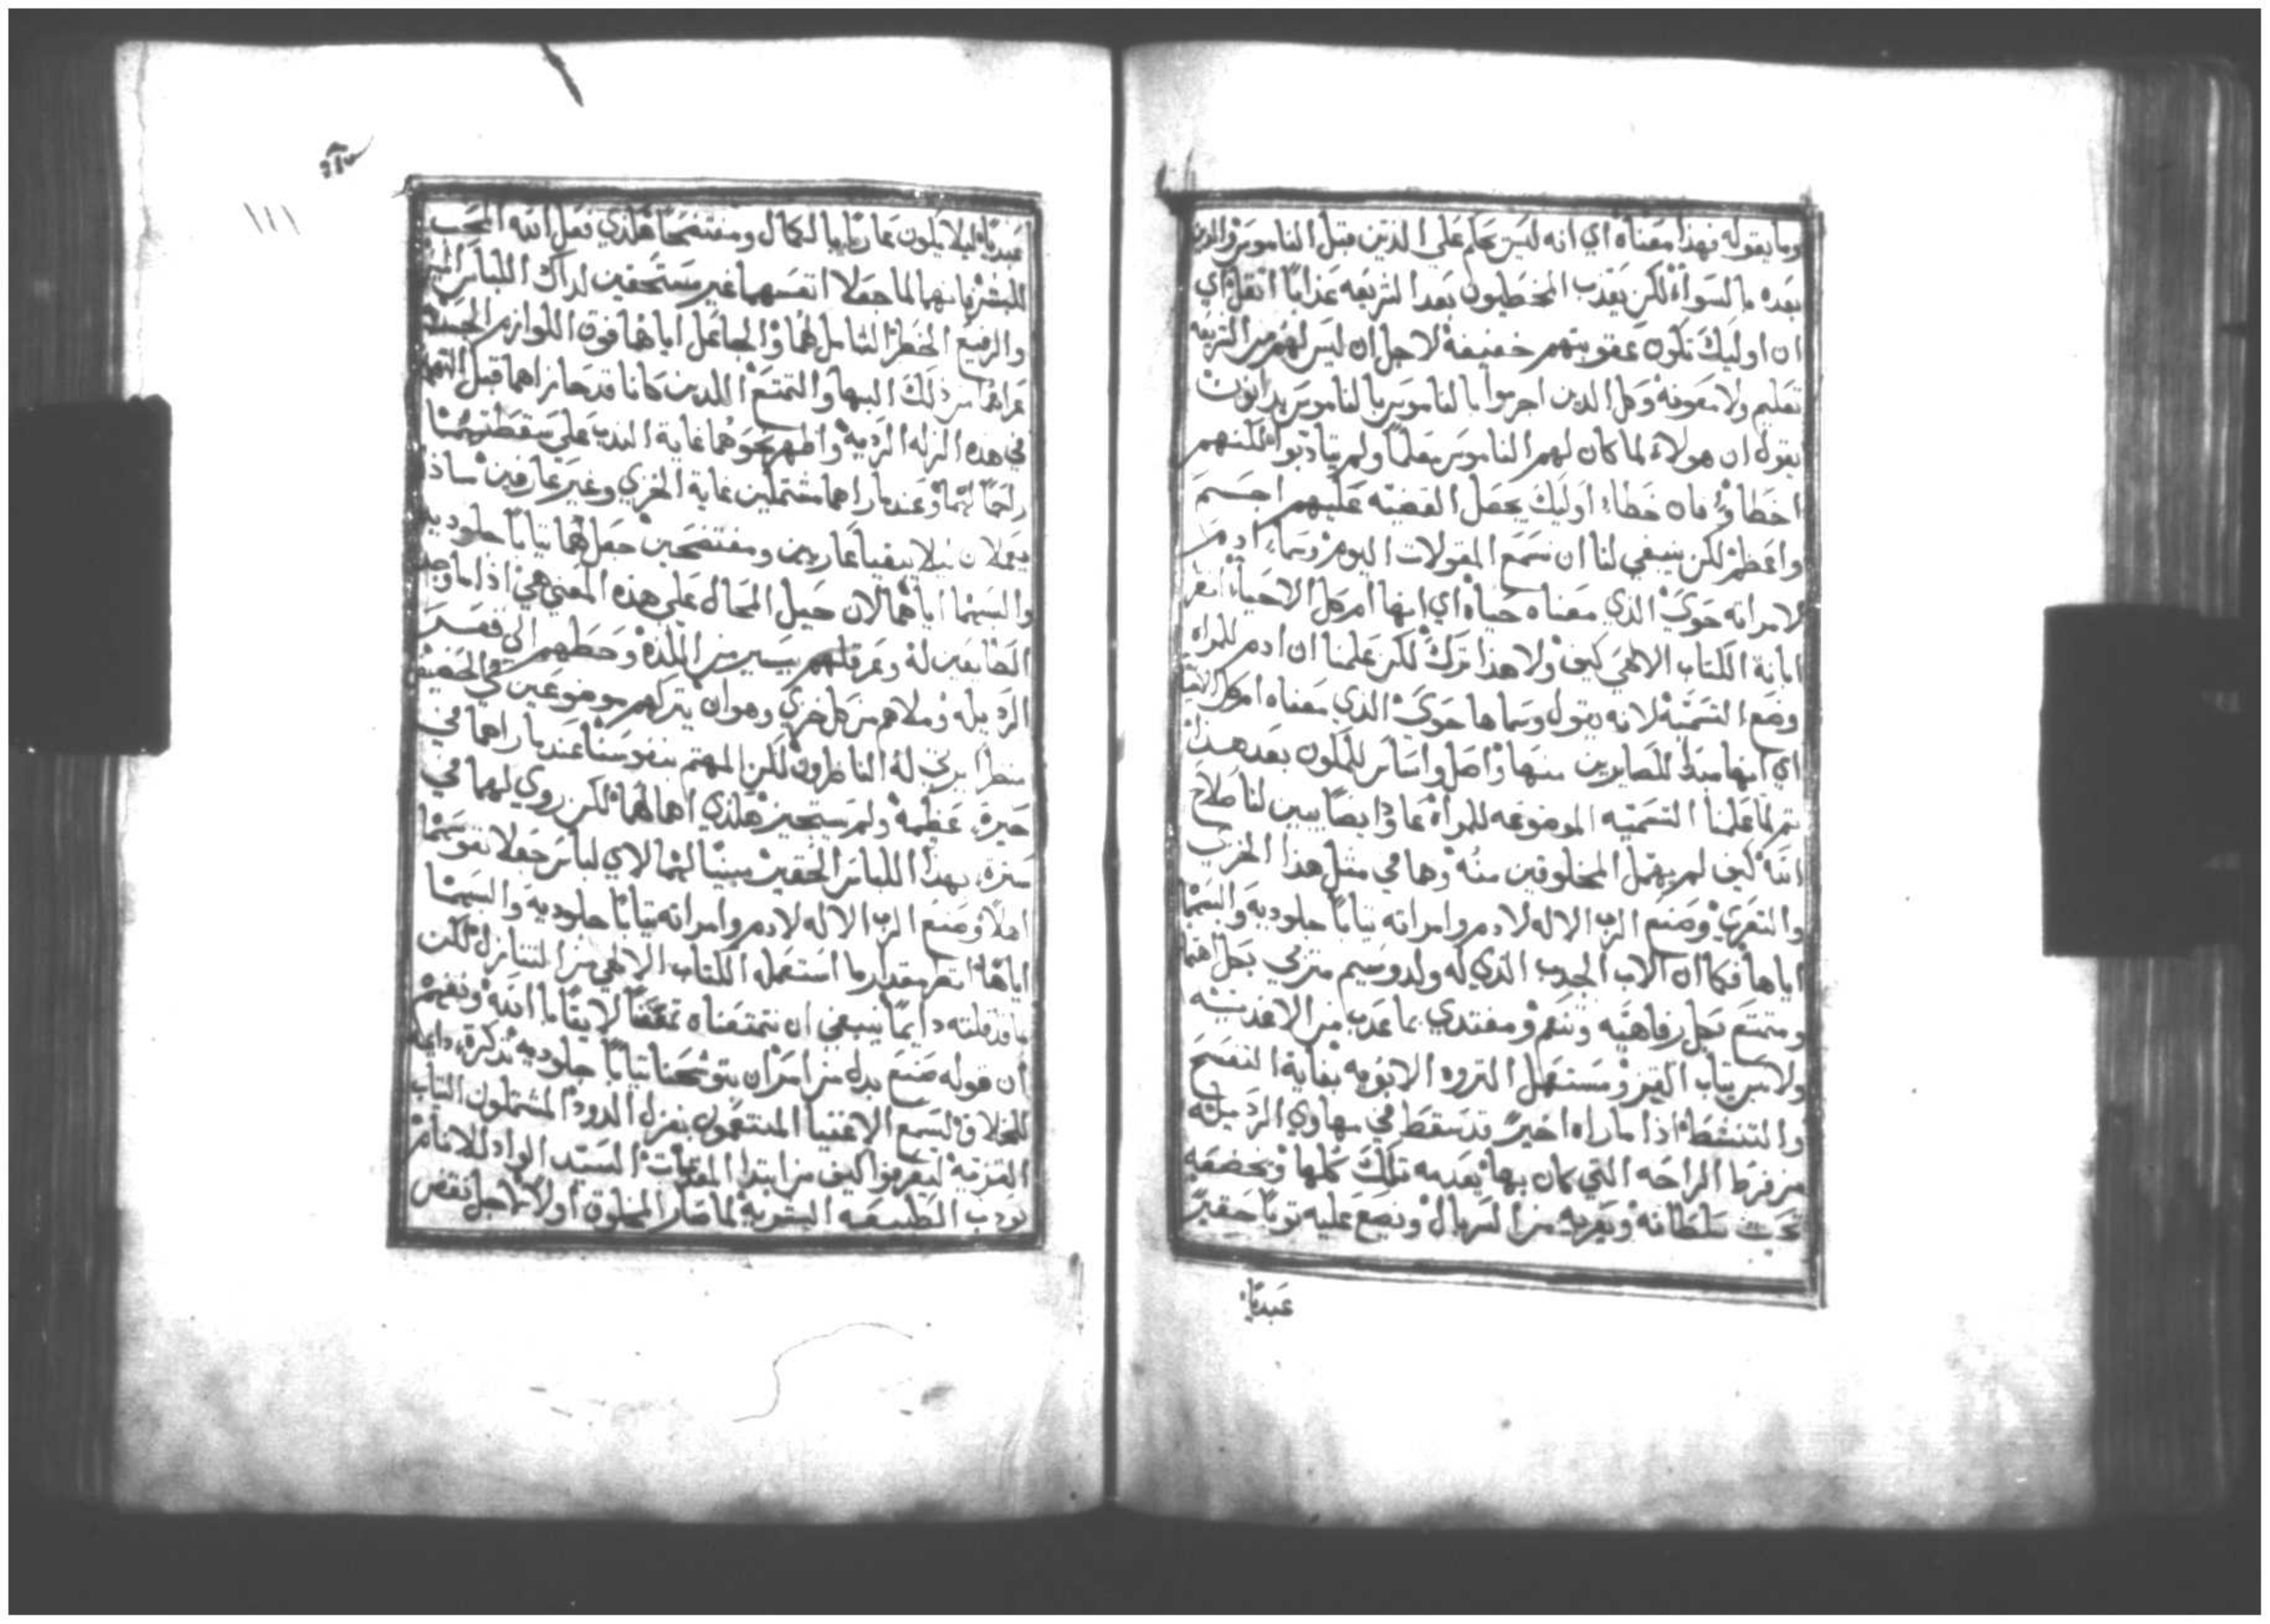 وما يقوله فهذا معناه اي انه ليس يحكم على الذين قبل الناموس والذين
بعده بالسواة لكن يعذب المخطيون بعد الشريعه عذابًا اثقل اي
ان اوليك تكون عقوبتهم خفيفة لاجل ان ليس لهم من الشريعه
تعليم ولا معونة وكل الدين اجرموا بالناموس بالناموس يدانون
يقول ان هولاء لما كان لهم الناموس معلمًا ولم يتادبوا لكنهم
اخطاوا فان خطاء اوليك يجعل القضيه عليهم اجسم
واعظم لكن ينبغي لنا ان نسمع المقولات اليوم وسما ادم
لامراته حوي الذي معناه حياه اي انها ام كل الاحيا انظر
ابانة الكتاب الالهي كيف ولا هذا ترك لكن علمنا ان ادم للمراه
وضع التسميه لانه يقول وسماها حوي الذي معناه ام كل الاحيا
اي انها مبدا للصايرين منها واصل واساس للمكون بعد هذا
تم لما علمنا التسميه الموضوعه للمراه عاد ايضا يبين لنا صلاح
الله كيف لم يهمل المخلوقين منه وها في مثل هذا الخزي
والتعري وصنع الرب الاله لادم وامراته ثيابًا جلوديه والبسهما
اياها فكما ان الاب الحدب الذي له ولد وسيم متربي بكل اهتما
ومتمتع بكل رفاهيه وتنعم ومغتدي بما عدب من الاغديه
ولابس ثياب القز ومستعمل الثروه الابويه بغاية التفسح
والتنشط اذا ما راه اخيرً قد سقط في مهاوي الرذيله
من فرط الراحه التي كان بها يعدمه تلك كلها ويخضعه
تحت سلطانه ويعريه من السربال ويضع عليه ثوبًا حقيرً
عبديًا
عبديًا ليلا يكون عاريًا بالكمال ومفتضحًا هكذي فعل الله المحب
للبشر بانهما لما جعلا انفسهما غير مستحقين لداك اللباس
والرفيع الخطر الشامل لهما والجاعل اياهما فوق اللوازم
عراهما من ذلك البها والتمتع اللدين كانا قد حازاهما قبل
في هذه الزله الرديه واظهر نحوهما غاية الحدب على سقطتهما
راحمًا لهما وعند ما راهما مشتملين غاية الخزي وغير عارفين ماذا
يعملان ليلا يبقيا عاريين ومفتضحين جعل لهما ثيابًا جلوديه
والبسهما اياها لان حيل المحال على هذه المعني هي اذا ما وجد
الطايعين له وعرقلهم بيسير من اللذة وحطهم الى قعر
الرذيله وملاهم من كل خزي وهوان يتركهم موضوعين في الحضيض
منظرا يرثي له الناظرون لكن المهتم بنفوسنا عند ما راهما في
حيره عظيمة ولم يستجيز هكذي اهمالهما لكن روي لهما في
ستره بهذا اللباس الحقير مبينًا لهما لاي لباس جعلا نفوسهما
اهلاً وصنع الرب الاله لادم وامراته ثيابًا جلوديه والبسهما
اياها انظر مقدار ما استعمله الكتاب الالهي من التنازل لكن
ما قد قلته دايمًا ينبغي ان نتمتعناه لايقًا بالله ونفهم
ان قوله صنع بدل من امر ان يتوشحنا ثيابًا جلوديه تذكرة دايمه
للخلاف ليسمع الاغنيا المتنعمون بغزل الدود المشتملون الثياب
القزيه ليعرفوا كيف من ابتدا السيد الواد للانام
يودب الطبيعه البشريه لما صار المخلوق اولاً لاجل نقض